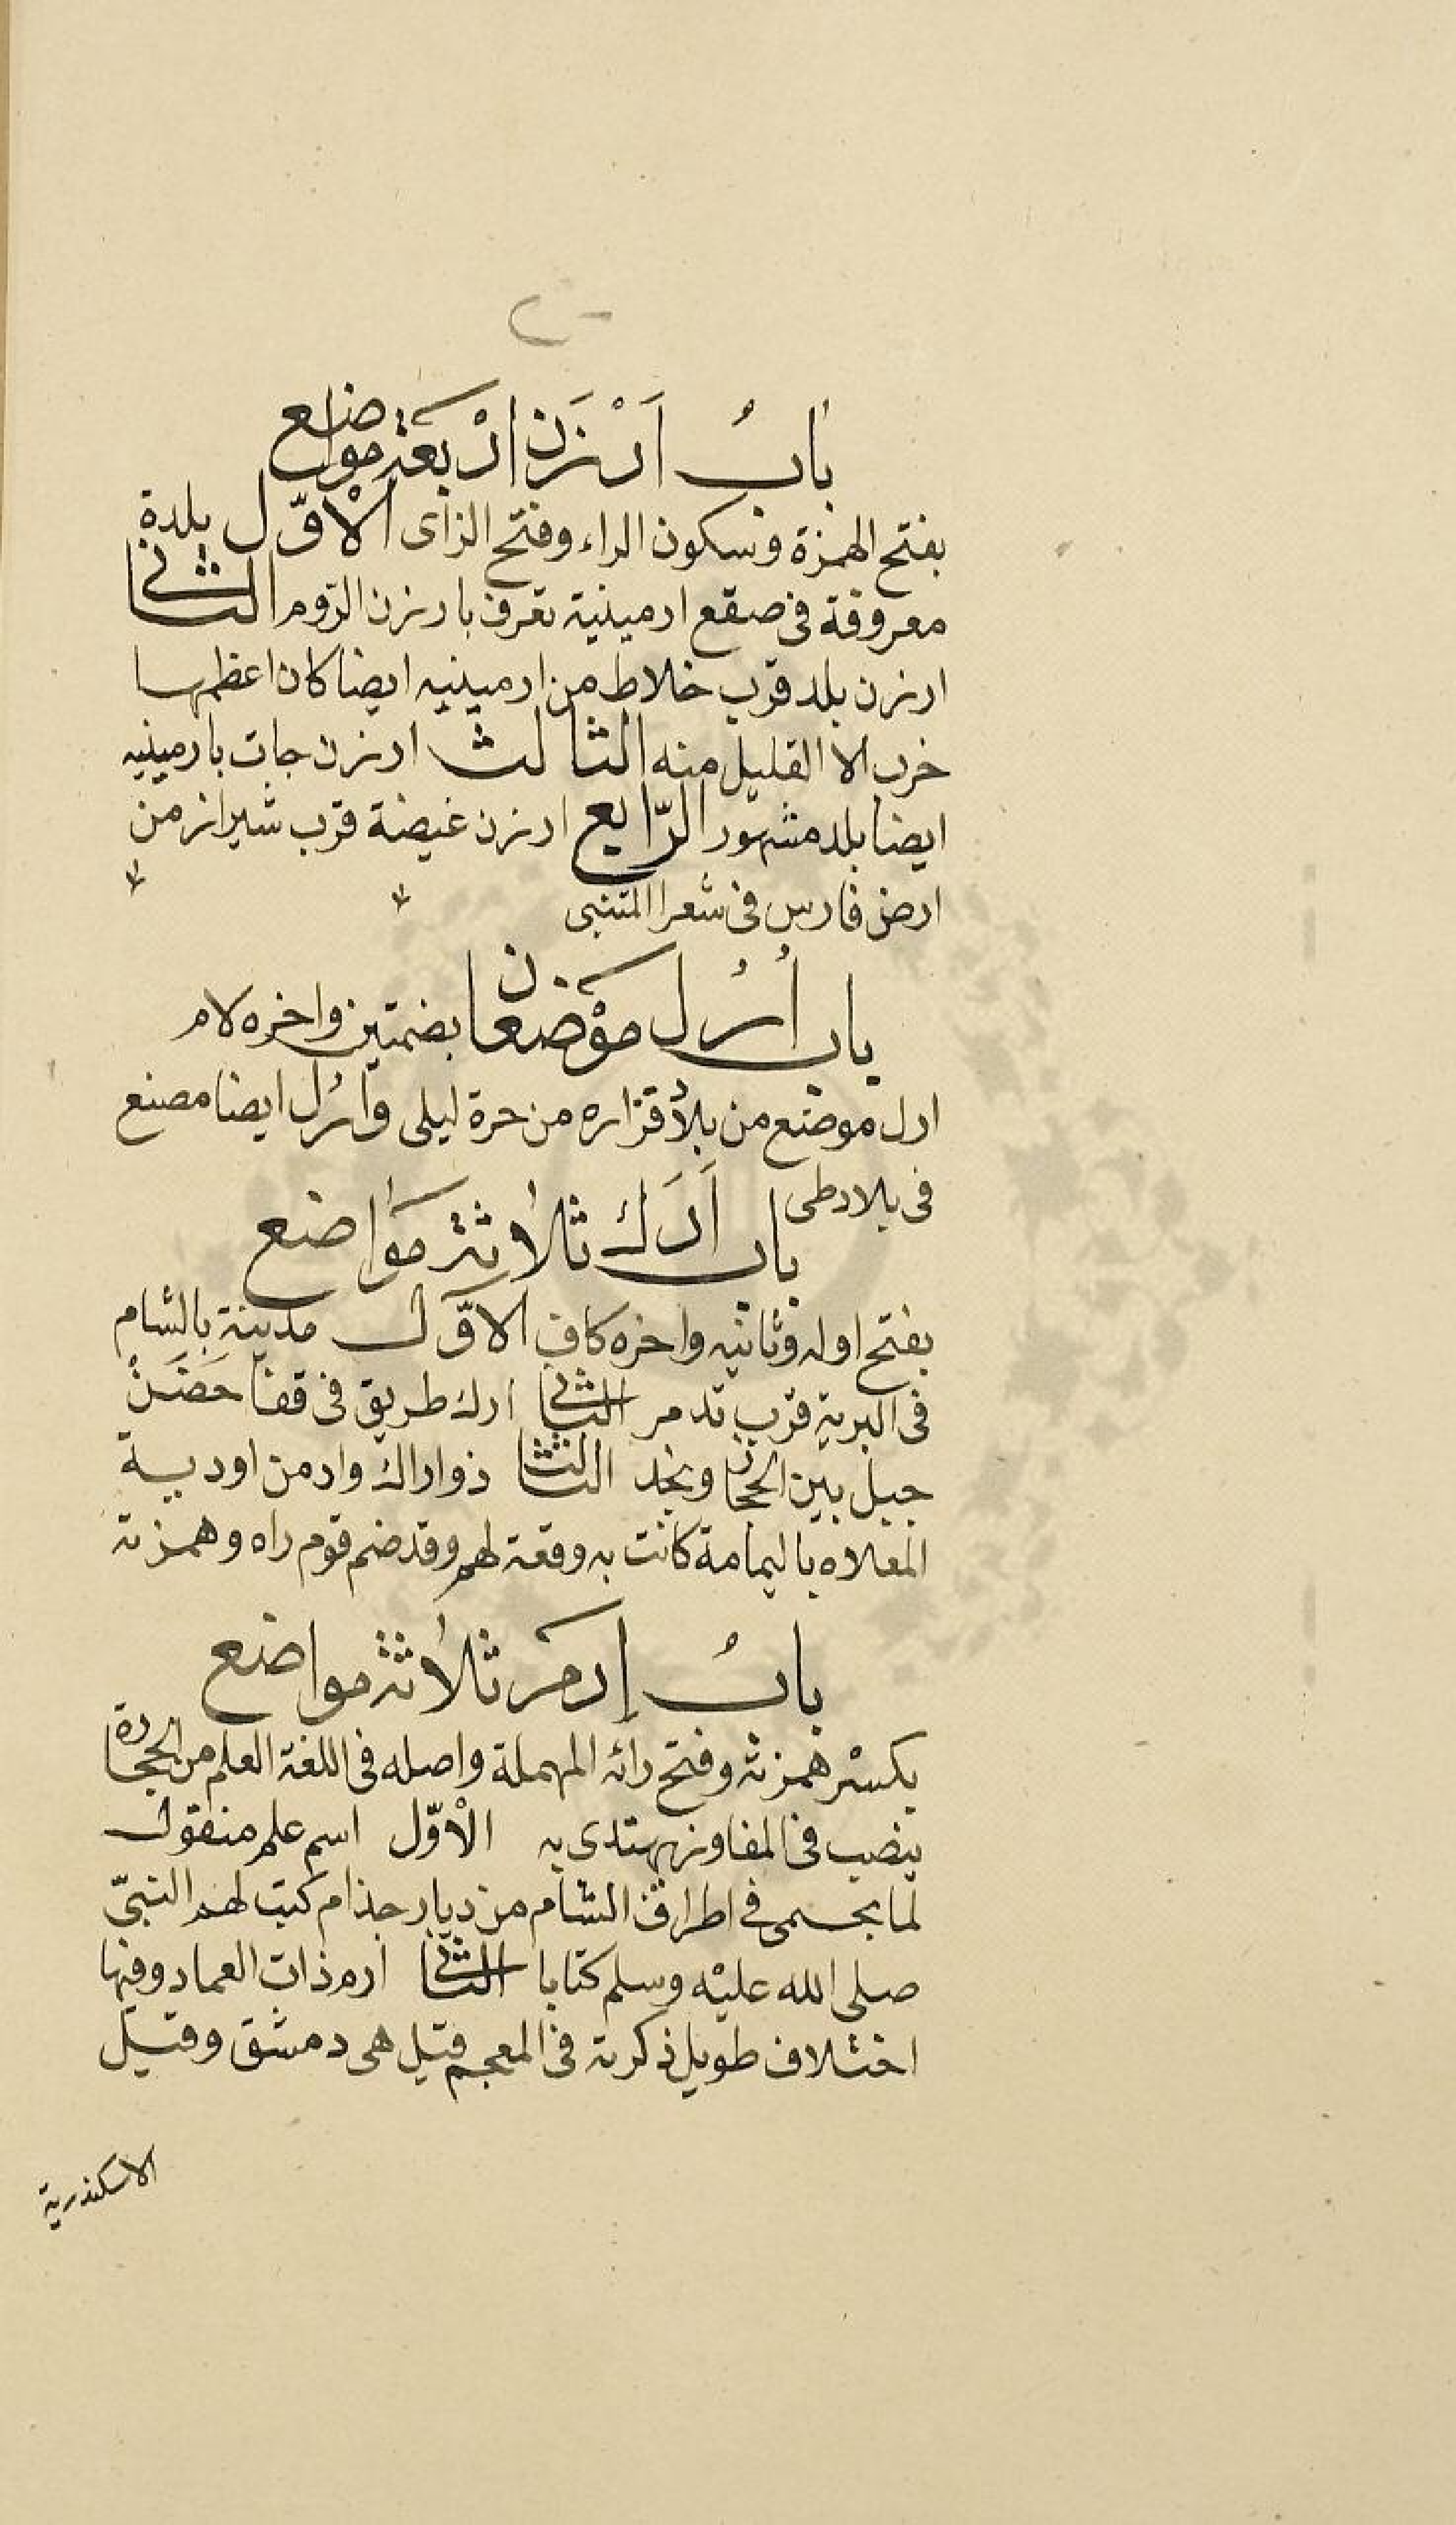 بابُ اَرْزَن اَرْبَعَة مواضع
بفتح الهمزة وسكون الراء وفتح الزاى الاوّل بلدة
معروفة فى صقع ارمينية تعرف بارزن الرّوم الثانى
ارزن بلد قرب خلاط من ارمينيه ايضا كان اعظمها
خرب الا القليل منه الثالث ارزن جات بارمينيه
ايضا بلد مشهور الرّابع ارزن غيضة قرب شيراز من
ارض فارس فى شعر المتنبى
باب اُرُل مَوْضعان بضمتين واخره لام
ارل موضع من بلاد فزاره من حرة ليلى وارُل ايضا مصنع
فى بلاد طى
باب اَرَك ثلاثة مَواضع
بفتح اوله وثانيه واخره كاف الاوّل مدينة بالشام
فى البرية قرب تدمر الثانى ارك طريق فى قفا حَضَنْ
جبل بين الحجاز ونجد الثالث ذو اراك واد من اودية
المعلاه باليمامة كانت به وقعة لهم وقد ضم قوم راه وهمزته
بابُ إرَم ثلاثة مواضع
بكسْر همزته وفتح رائه المهملة واصله فى اللغة العلم من الحجارة
ينصب فى المفاوز يهتدى به الاْوّل اسم علم منقول
لما بحسمى فى اطراف الشام من ديار جذام كتب لهم النبىّ
صلى الله عليْه وسلم كتابا الثانى ارم ذات العماد وفيها
اختلاف طويل ذكرته فى المعجم قيل هى دمشق وقيل
الاسكندرية